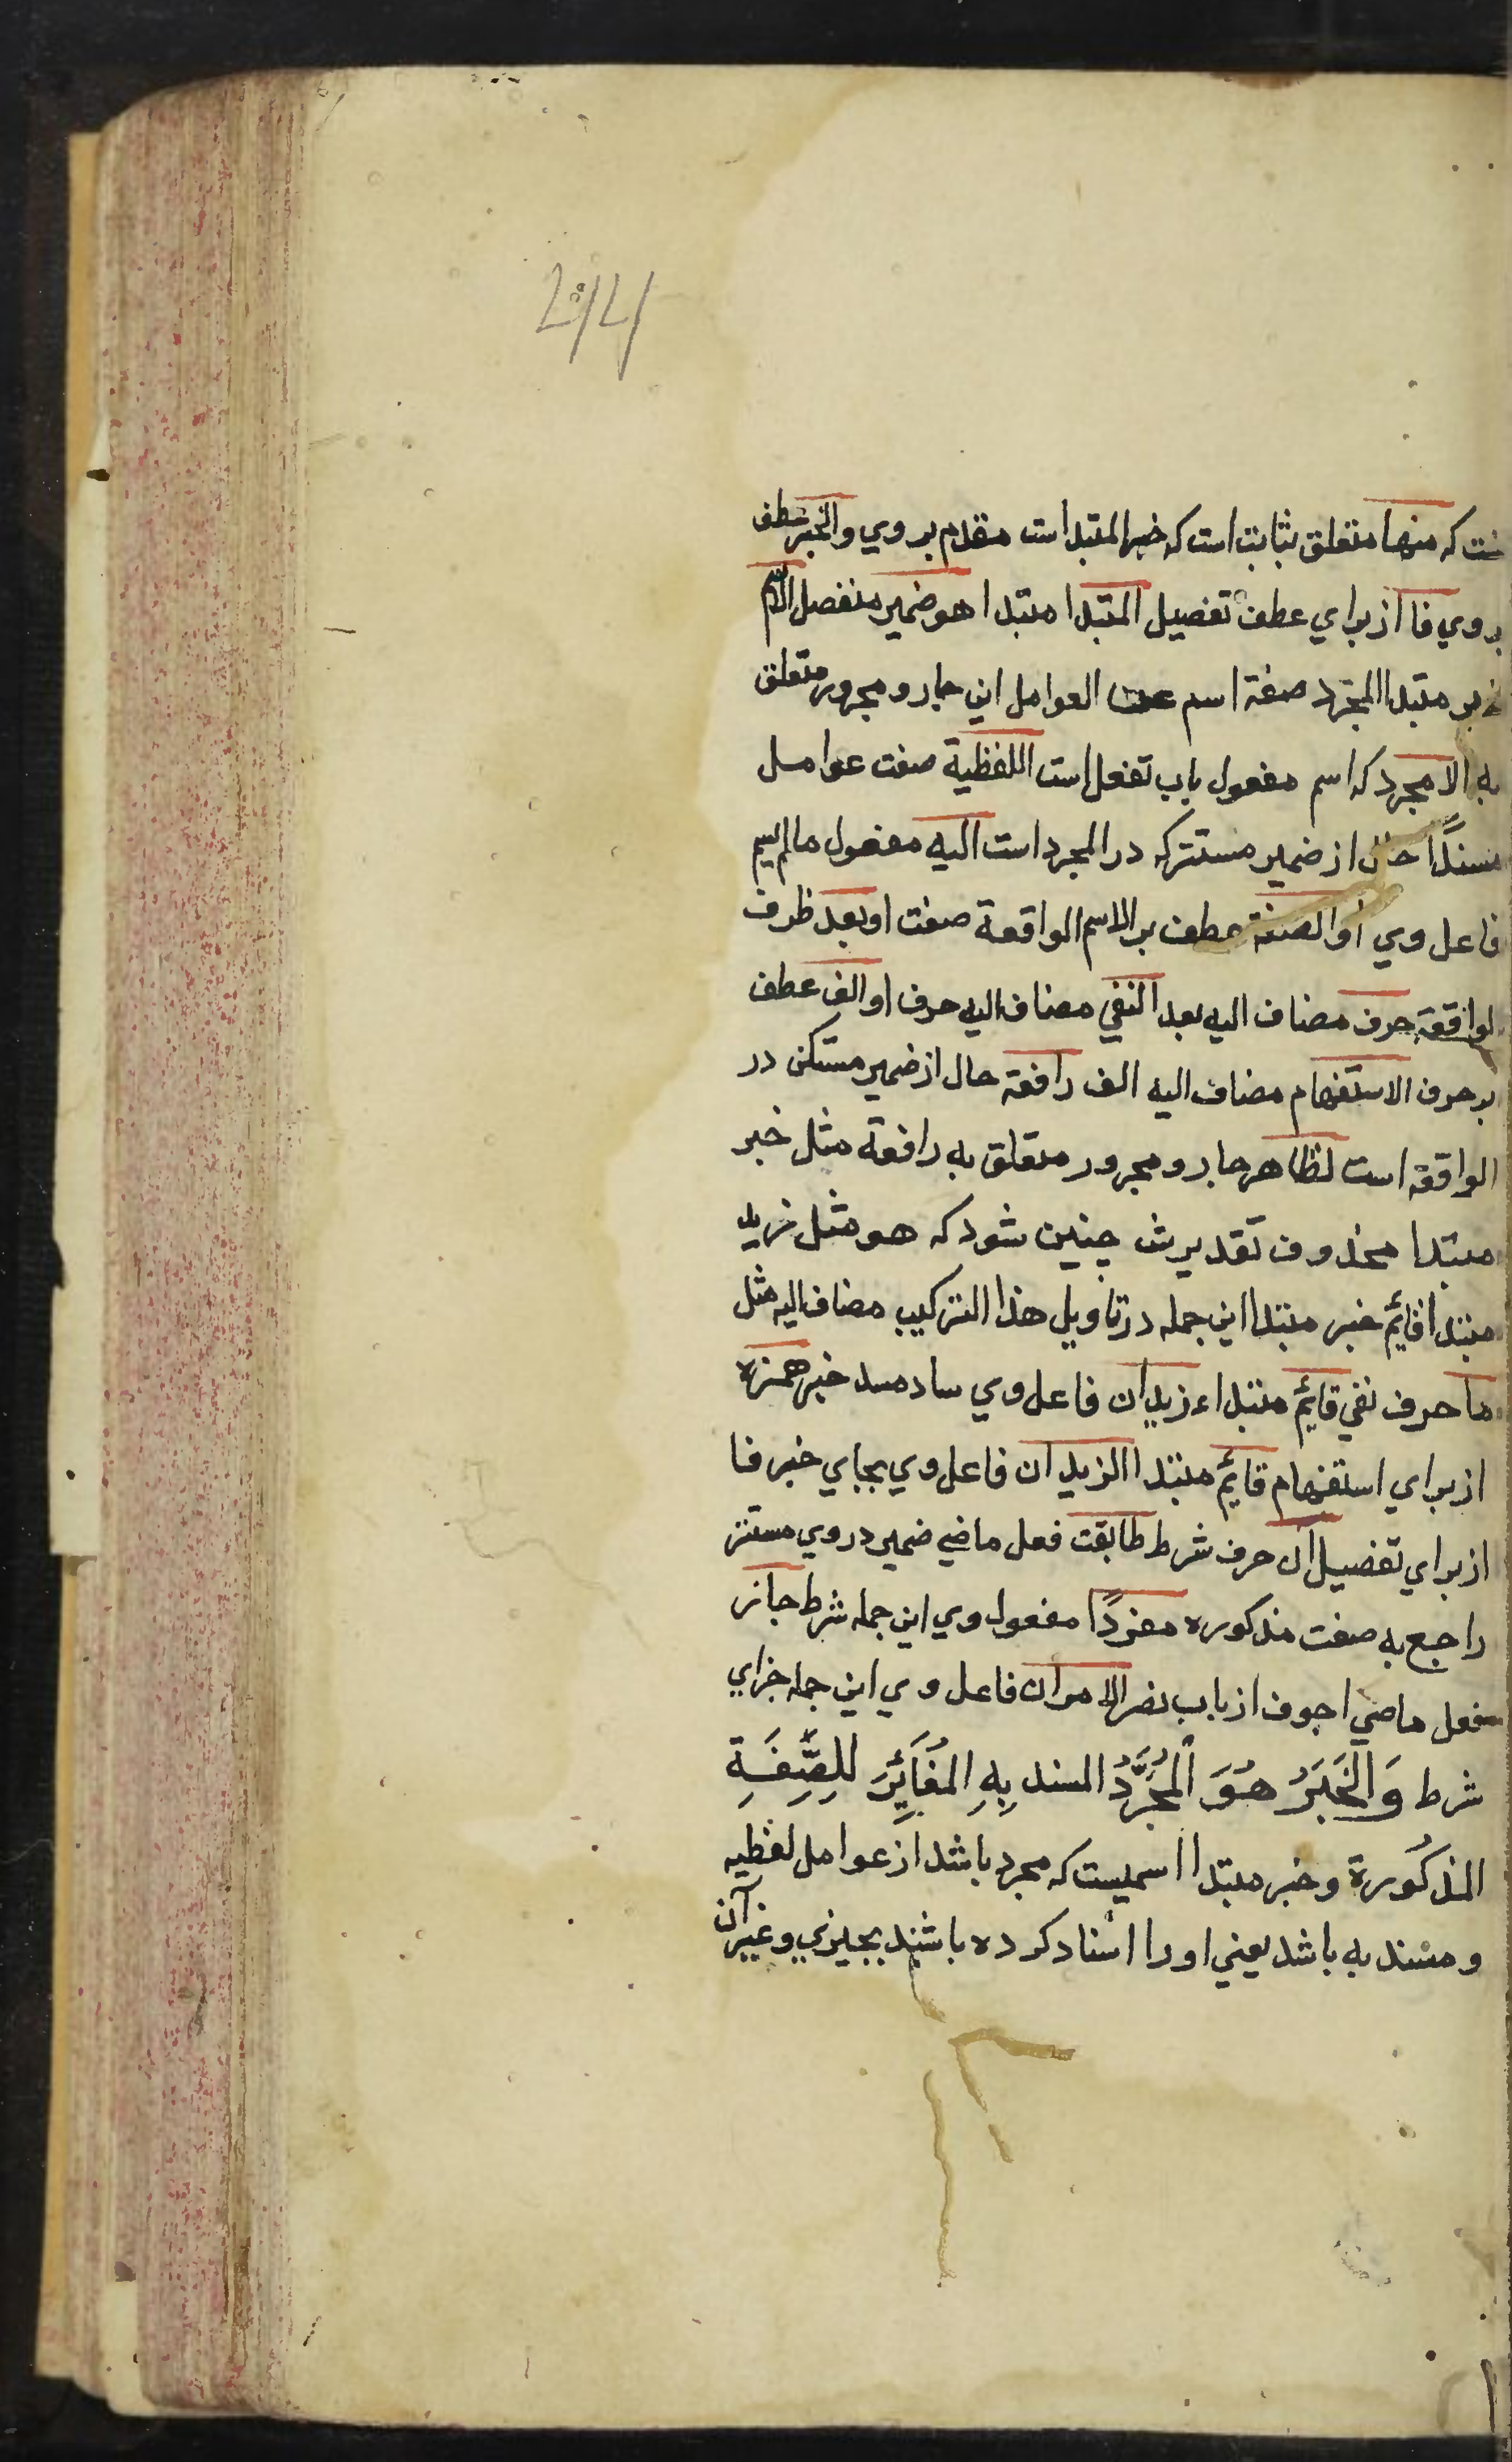 که منها متعلق بثابت است که خبر المتبدا است مقدم بر وي والخبر عطف
بر وي فا از براي عطف تفصيل المتبدا مبتدا هو ضمير منفصل الاسم
خبر مبتدا المجرّد صفة اسم عن العوامل اين جار و مجرور متعلق
به المجرد که اسم مفعول باب تفعل است اللفظية صفت عوامل
مسندًا حال از ضمير مستتر که در المجرد است اليه مفعول مالم يسم
فاعل وي أو الصفة عطف بر الاسم الواقعة صفت او بعد ظرف
لواقعة حرف مضاف اليه بعد النفي مضاف اليه حرف او الف عطف
بر حرف الاستفهام مضاف اليه الف رافعة حال از ضمير مستكن در
الواقعة است لظاهر جار و مجرور متعلق به رافعة مثل خبر
مبتدا محذوف تقديرش چنين شود که هو مثل زيد
مبتدا قايم خبر مبتدا اين جمله در تاويل هذا التركيب مضاف اليه مثل
ما حرف نفي قايم مبتداء زيدان فاعل وي ساد مسد خبر همزه
از براي استفهام قايم مبتدا الزيدان فاعل وي بجاي خبر فا
از براي تفصيل ان حرف شرط طابقت فعل ماضي ضمير در وي مستتر
راجع به صفت مذکوره مفردًا مفعول وي اين جمله شرط جاز
فعل ماضي اجوف از باب نصر الامران فاعل وي اين جمله جزاي
شرط وَالخَبَرُ هُوَ المُجَرَّدُ المسند بِهِ المُغَايِرَ لِلصِّفَةِ
المذكُورة و خبر مبتدا اسميست که مجرد باشد از عوامل لفظيه
و مسند به باشد يعني او را اسناد کرده باشند بچيزي و غير آن